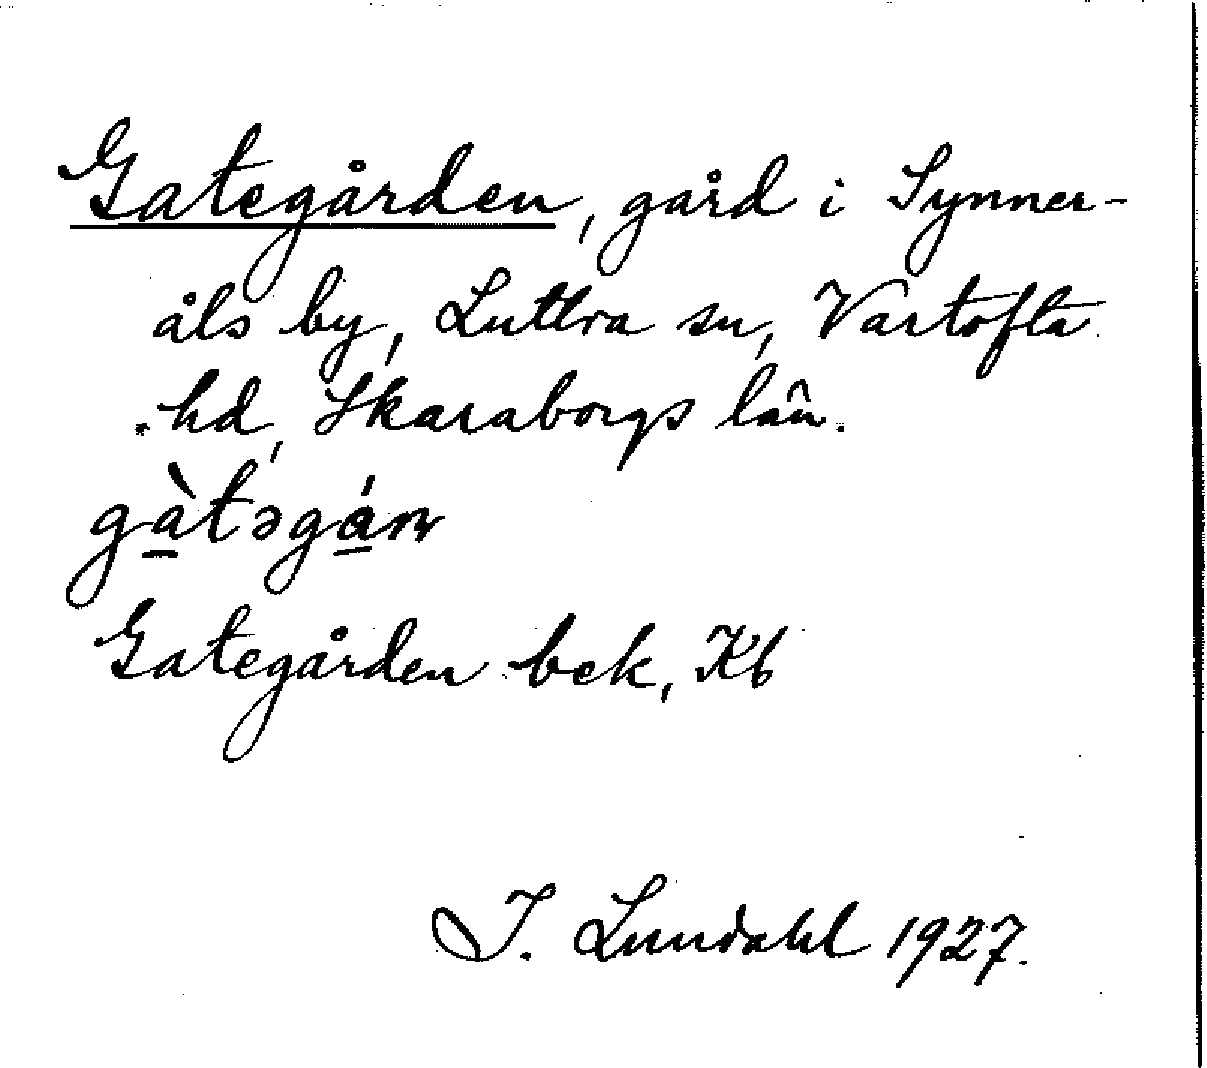 Gategården, gård i Synner-
åls by, Luttra sn, Vartofta
hd, Skaraborgs län.
gàtəgán
Gategården bek, Kb
I. Lundahl 1927.